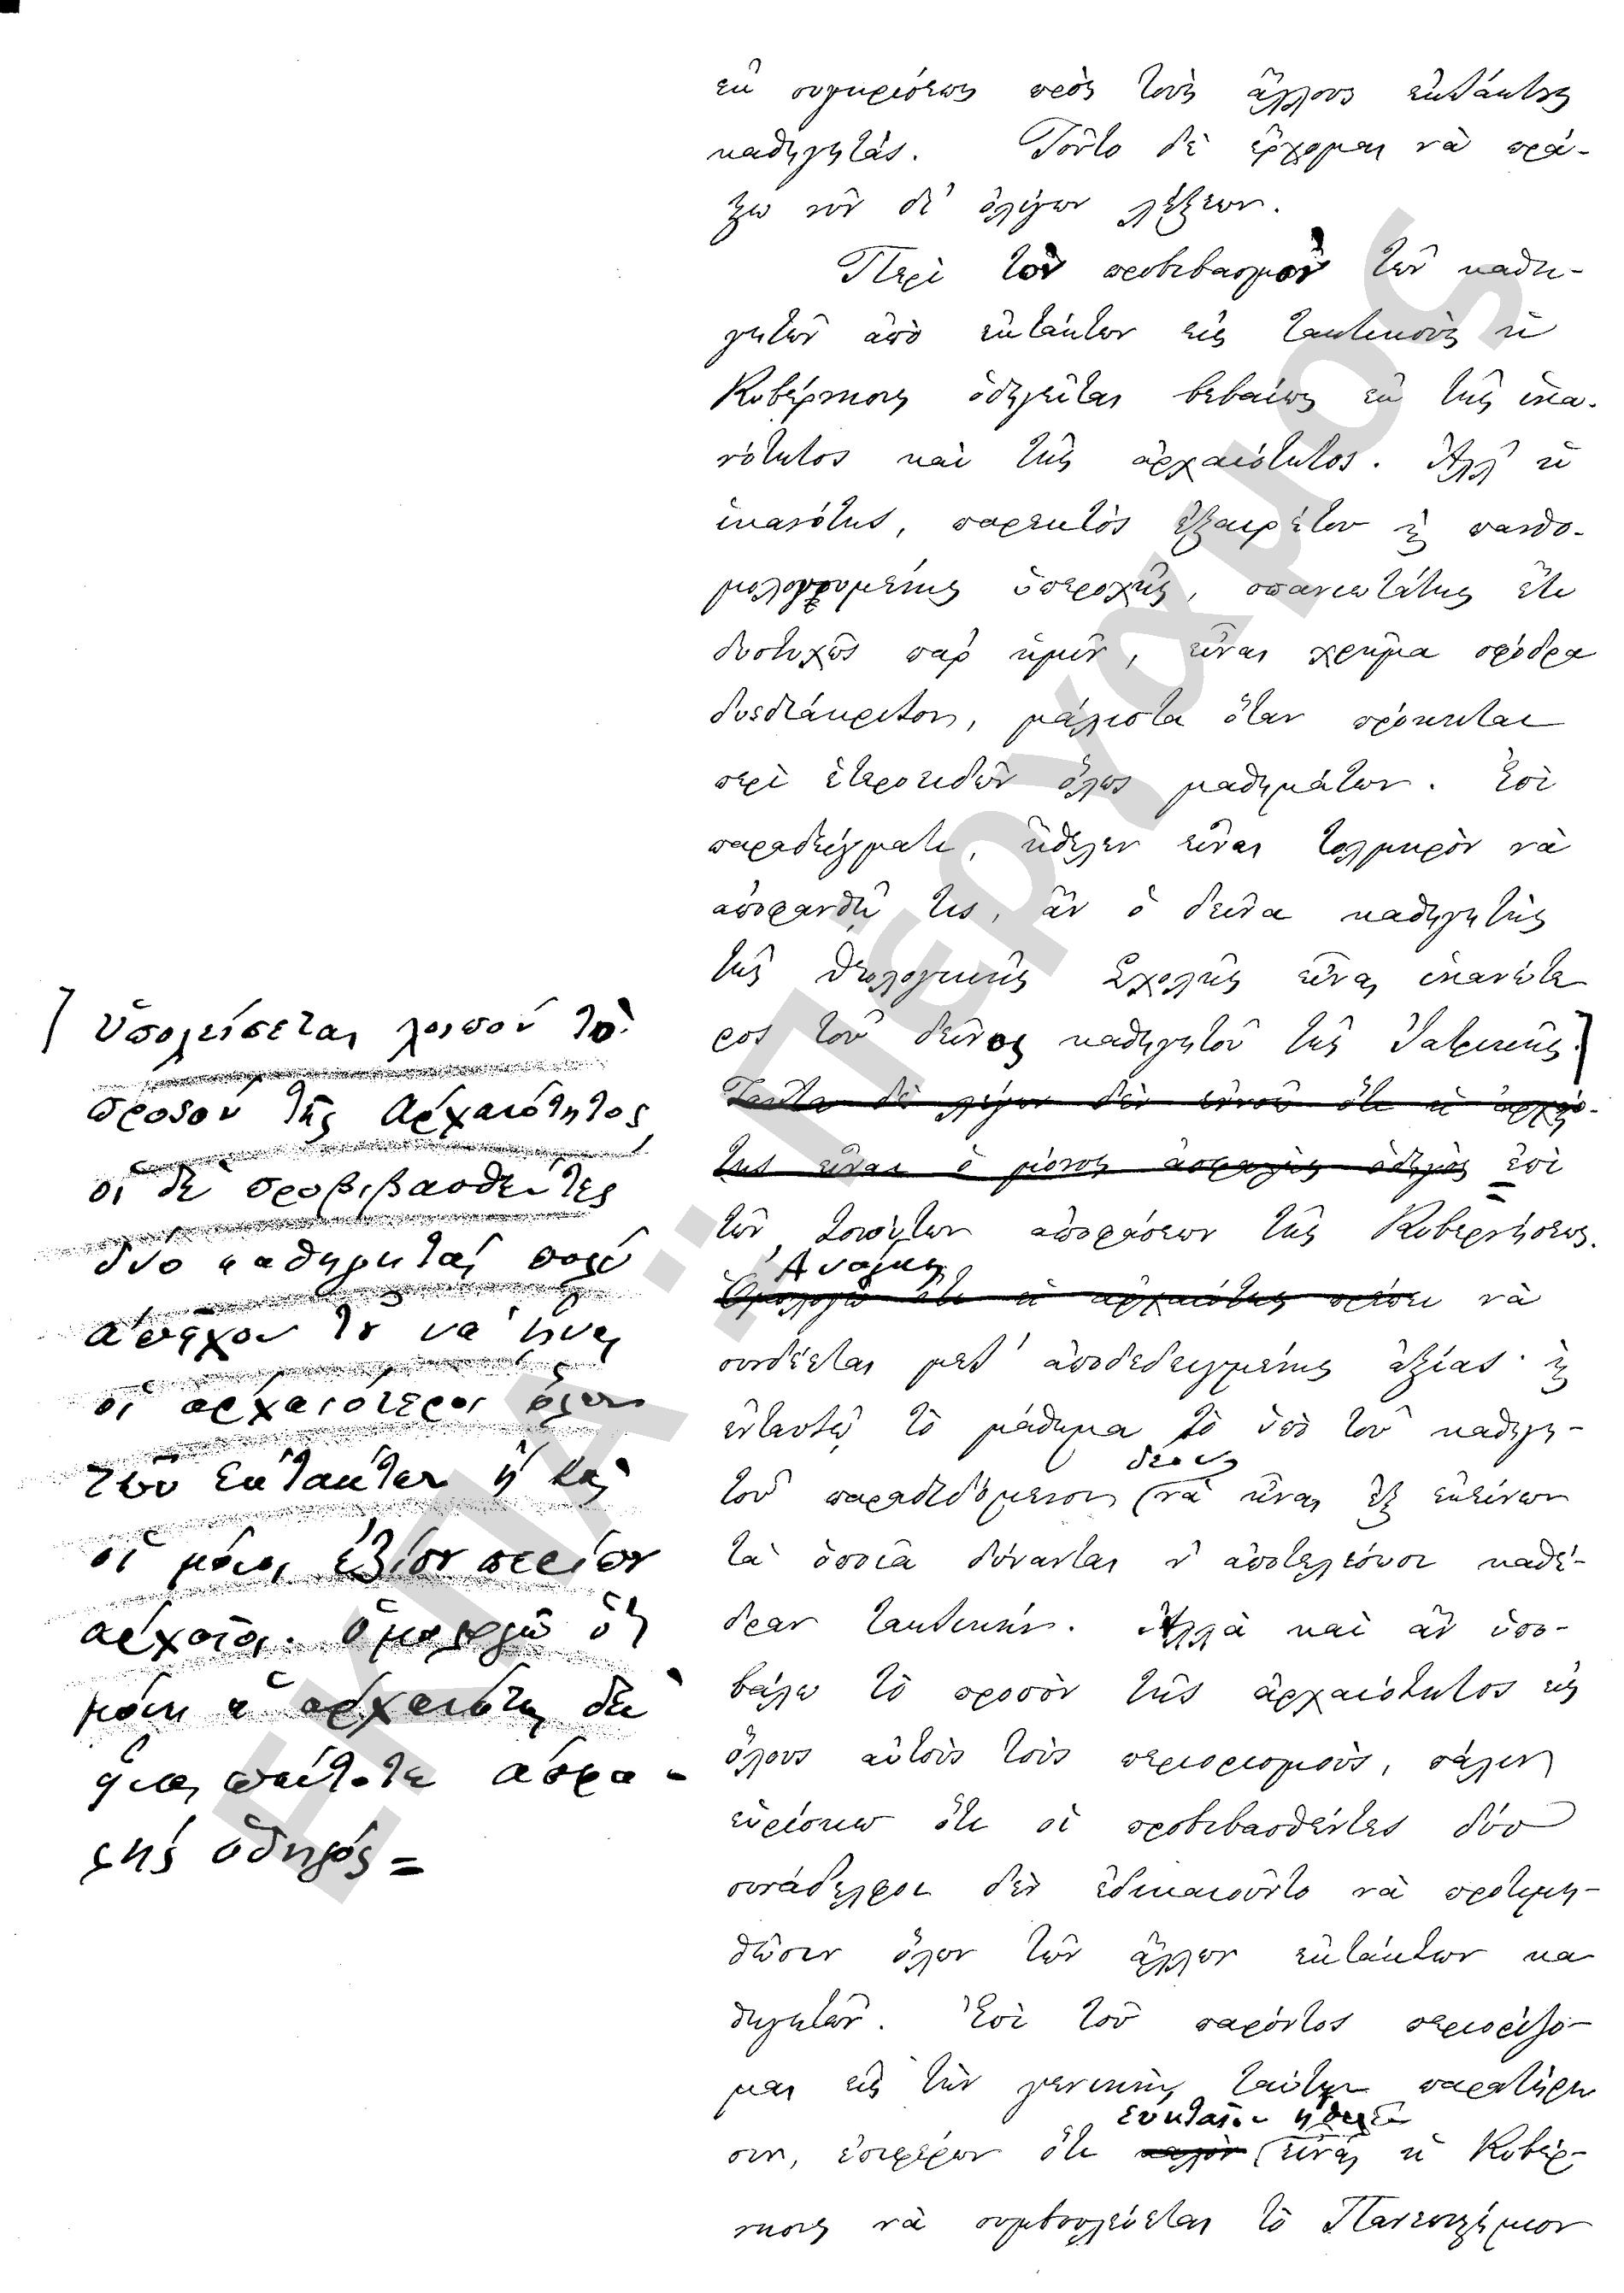 ἐκ συγκρίσεως πρὸς τοὺς ἄλλους ἐκτάκτους
καθηγητάς. Τοῦτο δὲ ἔρχομαι νὰ πρά-
ξω νῦν δι' ὀλίγων λέξεων.
Περὶ τὸν προβιβασμὸν τῶν καθη-
γητῶν ἀπὸ ἐκτάκτων εἰς τακτικοὺς ἡ
Κυβέρνησις ὁδηγεῖται βεβαίως ἐκ τῆς ἱκα-
νότητος καὶ τῆς ἀρχαιότητος. Ἀλλ' ἡ
ἱκανότης, παρεκτὸς ἐξαιρέτου κ πανθο-
μολογουμένης ὑπεροχῆς, σπανιωτάτης ἔτι
δυστυχῶς παρ' ἡμῖν, εἶναι χρῆμα σφόδρα
δυσδιάκριτον, μάλιστα ὅταν πρόκηται
περὶ ἑτεροειδῶν ὅλως μαθημάτων. Ἐπὶ
παραδείγματι, ἤθελεν εἶναι τολμηρὸν νὰ
ἀποφανθῇ τις, ἂν ὁ δεῖνα καθηγητὴς
τῆς Θεολογικῆς Σχολῆς εἶναι ἱκανώτε
ρος τοῦ δεῖνος καθηγητοῦ τῆς Ἰατρικῆς.]
Ταῦτα δὲ λέγων δὲν ἐννοῶ ὅτι ἡ ἀρχαιό-
της εἶναι ὁ μόνος ἀσφαλὴς ὁδηγὸς ἐπὶ
τῶν τοιούτων ἀποφάσεων τῆς Κυβερνήσεως.
Ἀνάγκη
Ὁμολογῶ ὅτι ἡ ἀρχαιότης πρέπει νὰ
συνδέεται μετ' ἀποδεδειγμένης ἀξίας· κ
ἐνταυτῷ τὸ μάθημα τὸ ὑπὸ τοῦ καθηγη-
δέον
τοῦ παραδιδόμενον (νὰ εἶναι ἐξ ἐκείνων
τὰ ὁποῖα δύνανται ν' ἀποτελέσωσι καθέ-
δραν τακτικήν. Ἀλλὰ καὶ ἂν ὑπο-
βάλω τὸ προσὸν τῆς ἀρχαιότητος εἰς
ὅλους αὐτοὺς τοὺς περιορισμοὺς, πάλιν
εὑρίσκω ὅτι οἱ προβιβασθέντες δύο
συνάδελφοι δὲν ἐδικαιοῦντο νὰ προτιμη-
θῶσιν ὅλων τῶν ἄλλων ἐκτάκτων κα
θηγητῶν. Ἐπὶ τοῦ παρόντος περιορίζο-
μαι εἰς τὴν γενικὴν ταύτην παρατήρη
εὐκταῖον ἤθελεν
σιν, ἐπιφέρων ὅτι καλὸν (εἶναι ἡ Κυβέρ-
νησις νὰ συμβουλεύεται τὸ Πανεπιστήμιον
] Ὑπολείπεται λοιπὸν τὸ
προσὸν τῆς ἀρχαιότητος,
οἱ δὲ προβιβασθέντες
δύο καθηγηταὶ πολὺ
ἀπέχουν τοῦ νὰ ἦναι
οἱ ἀρχαιότεροι ὅλων
τῶν ἐκτάκτων ἢ καὶ
οἱ μόνοι ἐξίσου περίπου
ἀρχαῖοι. Ὁμολογῶ ὅτι
μόνη ἡ ἀρχαιότης δὲν
εἶναι πάντοτε ἀσφα-
λὴς ὁδηγός =
ΕΚΠΑ-:Πέργαμος